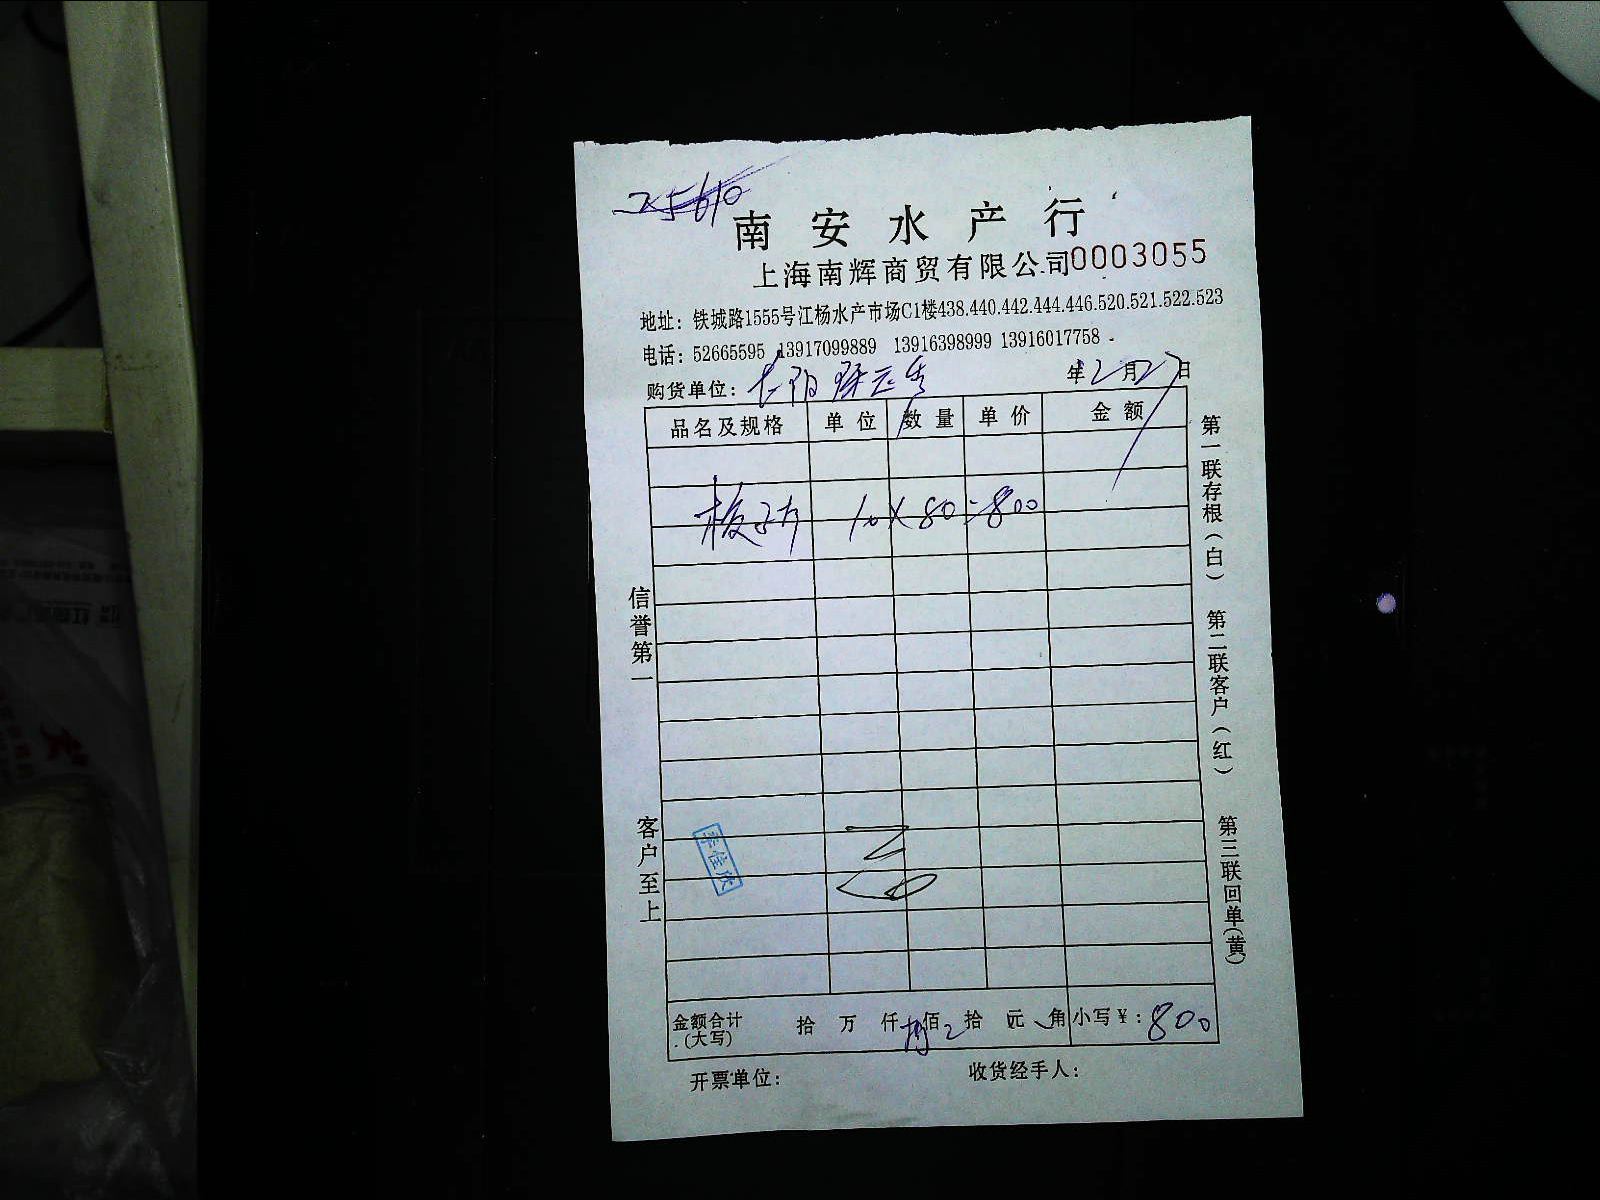 25610
南安水产行
上海南辉商贸有限公司0003055
地址：铁城路1555号江杨水产市场C1楼438.440.442.444.446.520.521.522.523
电话：52665595 13917099889 13916398999 13916017758
购货单位： 年2月27日
品名及规格 单位 数量 单价 金额
板子方 10×80=800
信誉第一
客户至上
李佳欣
第一联存根（白）
第二联客户（红）
第三联回单（黄）
金额合计（大写） 拾 万 仟 捌佰 拾 元 角 小写¥：800
开票单位： 收货经手人：